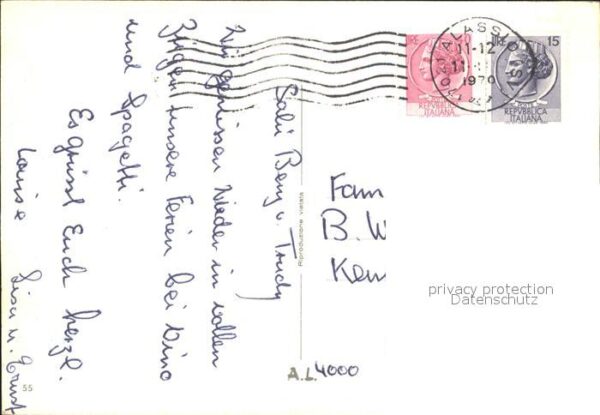 Sali Beny u. Trudy
Wir geniessen wieder in vollen
Zügen unsere Ferien bei Vino
und Spagetti.
Es grüsst Euch herzl.
Louise
Lisa u. Ernst
Fam
B. W
Ken
4000
A.L.
55
Riproduzione vietata
ALASSIO
11-12
1970
LIRE 15
REPVBBLICA
ITALIANA
REPVBBLICA
ITALIANA
privacy protection
Datenschutz